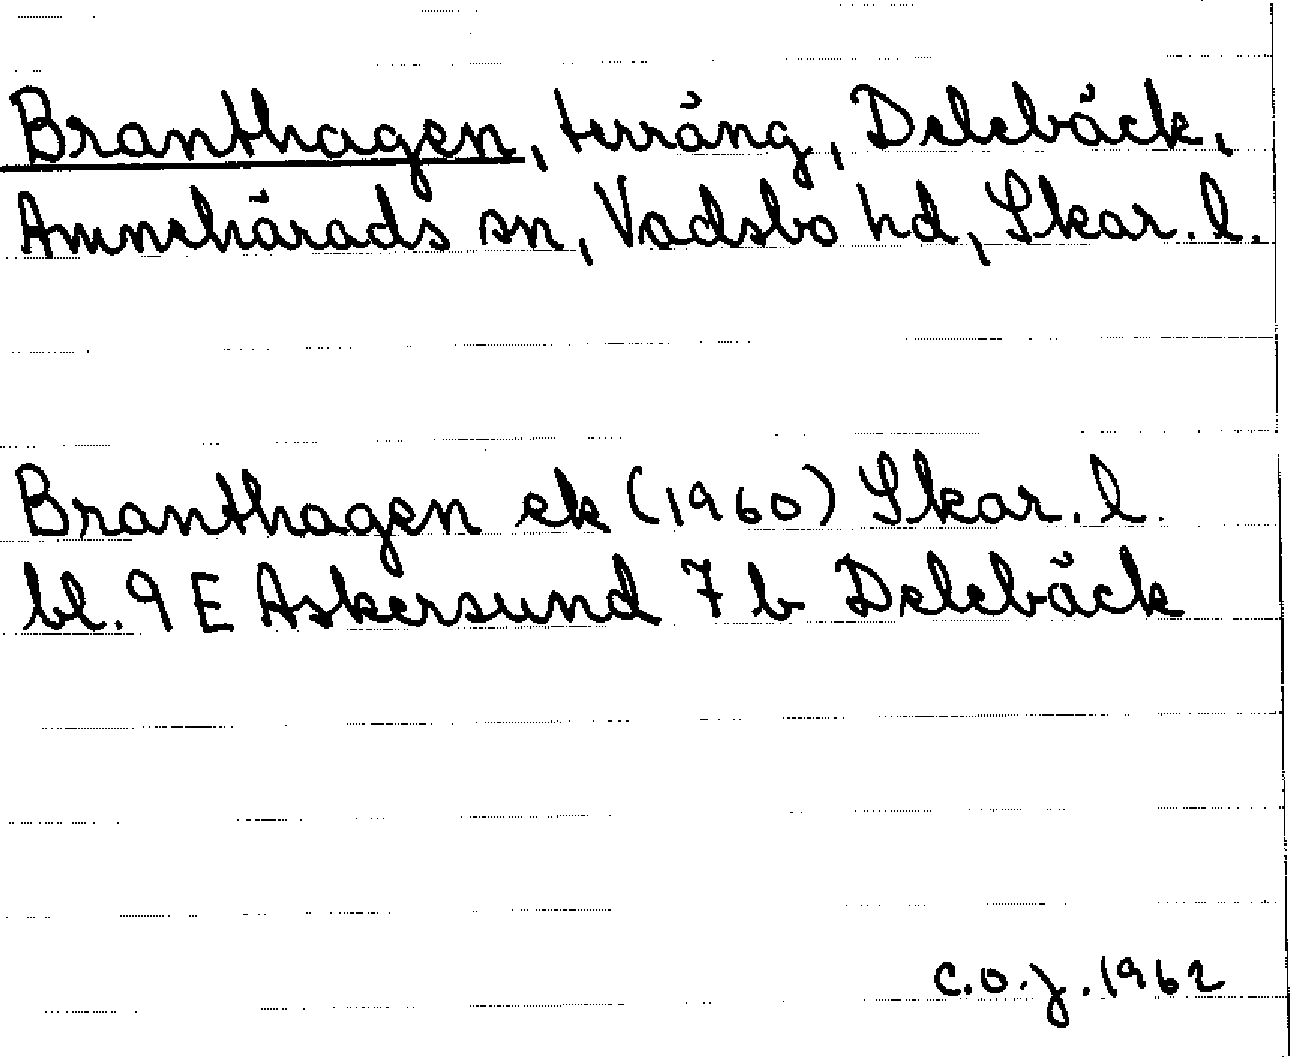 Branthagen, terräng, Delebäck,
Amnehärads sn, Vadsbo hd, Skar. l.
Branthagen ek (1960) Skar. l.
bl. 9 E Askersund 7 b Delebäck
C.O.J. 1962